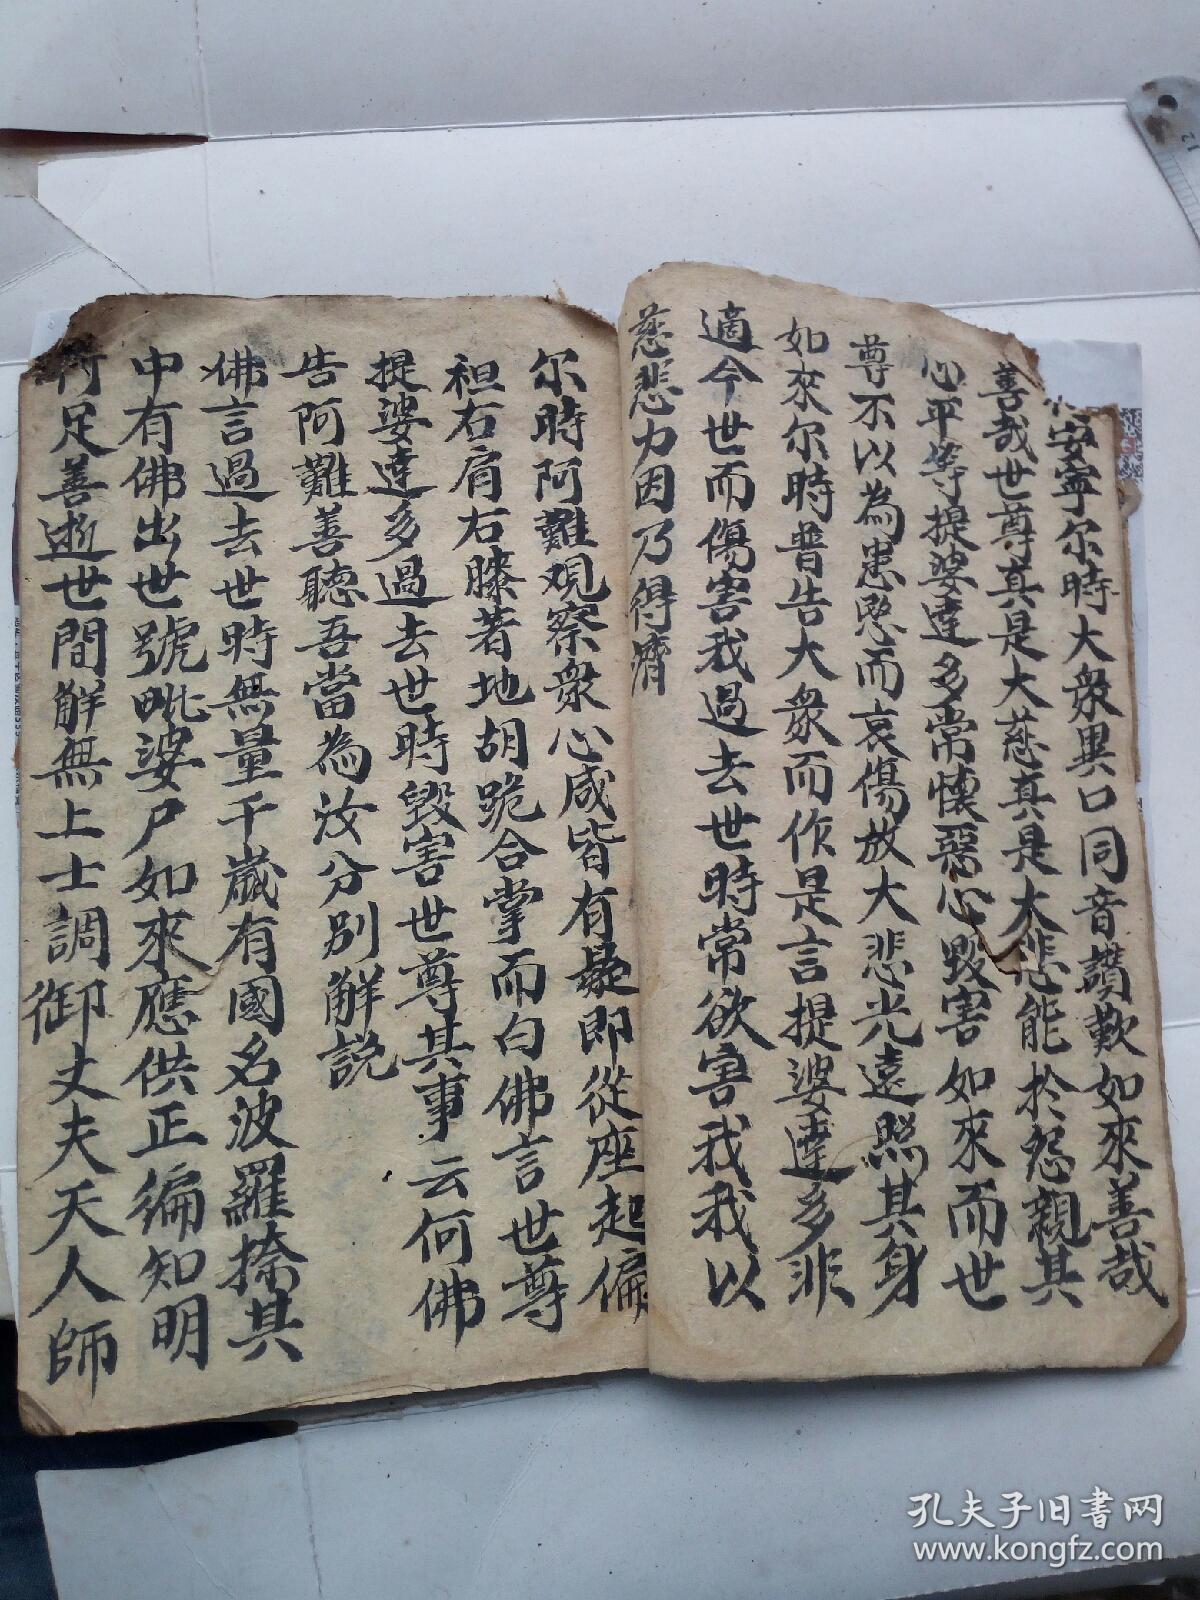 安寧尔時大衆異口同音讚歎如來善哉
善哉世尊真是大慈真是大悲能於怨親其
心平等提婆達多常懷惡心毀害如來而世
尊不以為患愍而哀傷放大悲光遠照其身
如來尔時普告大衆而作是言提婆達多非
適今世而傷害我過去世時常欲害我我以
慈悲力因乃得濟
尔時阿難觀察衆心咸皆有疑即從座起偏
袒右肩右膝著地胡跪合掌而白佛言世尊
提婆達多過去世時毀害世尊其事云何佛
告阿難善聽吾當為汝分別解説
佛言過去世時無量千歲有國名波羅捺其
中有佛出世號毗婆尸如來應供正徧知明
行足善逝世間解無上士調御丈夫天人師
孔夫子旧书网
www.kongfz.com
12